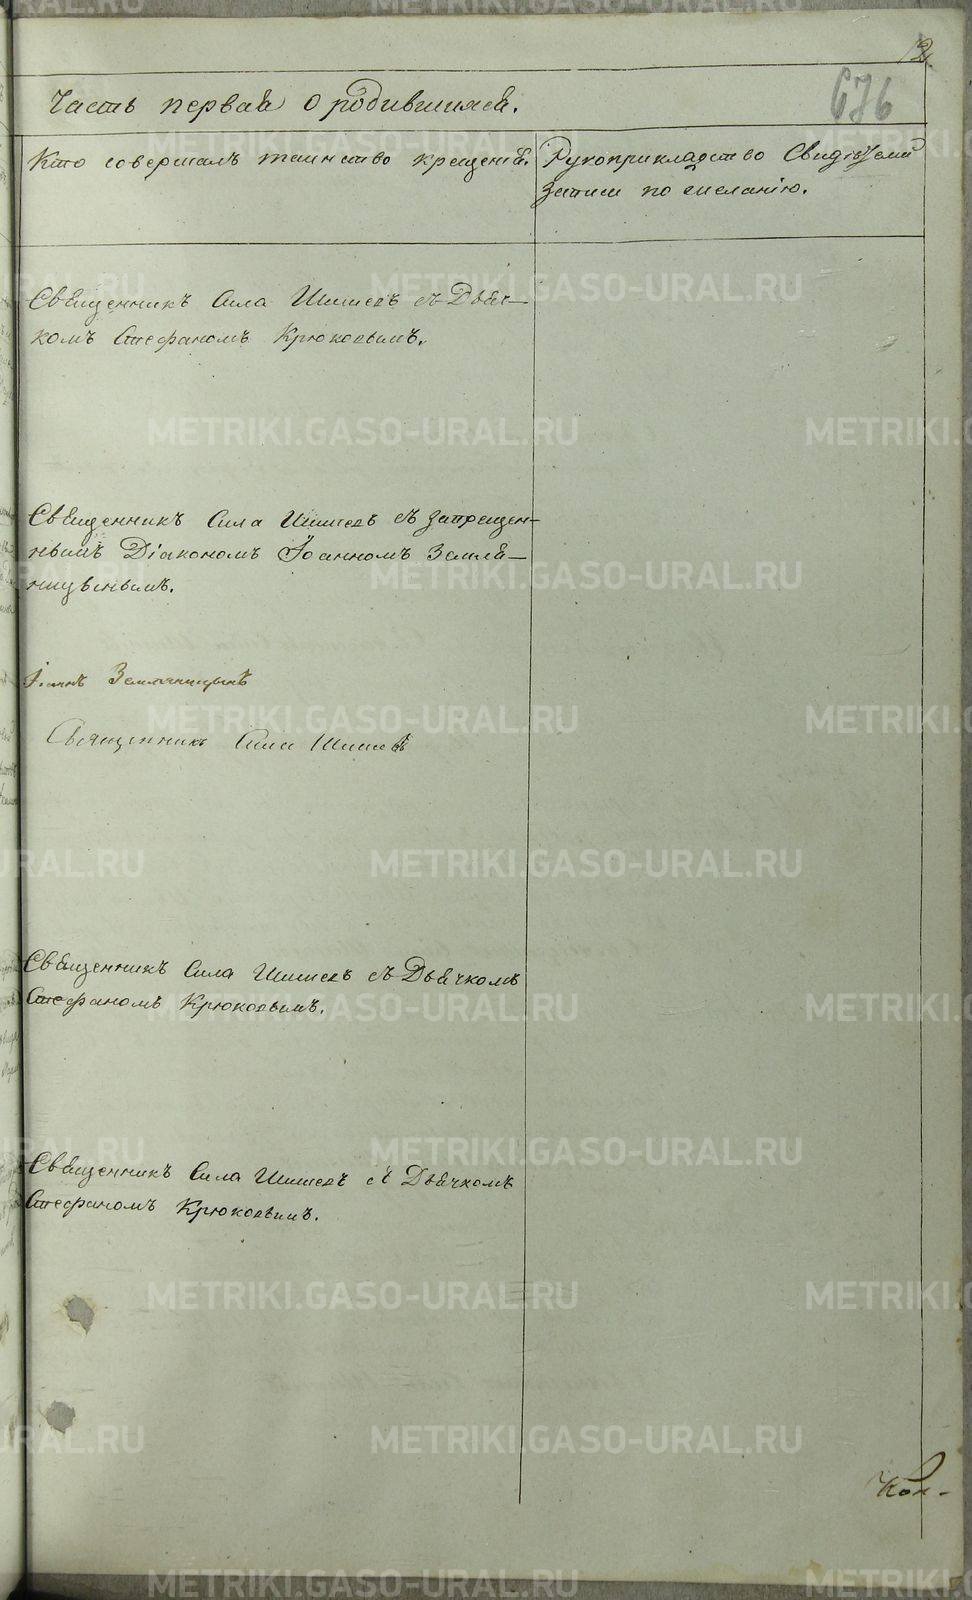 12.
676
Часть первая о родившихся.
Кто совершалъ таинство крещенія.
Рукоприкладство Свидѣтелей
записи по желанію.
Священникъ Сила Шишевъ съ Дьяч-
комъ Стефаномъ Крюковымъ.
Священникъ Сила Шишевъ съ запрещен-
нымъ Діакономъ Іоанномъ Земля-
ницынымъ.
Іоаннъ Земляницынъ
Священникъ Сила Шишевъ
Священникъ Сила Шишевъ съ Дьячкомъ
Стефаномъ Крюковымъ.
Священникъ Сила Шишевъ съ Дьячкомъ
Стефаномъ Крюковымъ.
Кол-
METRIKI.GASO-URAL.RU